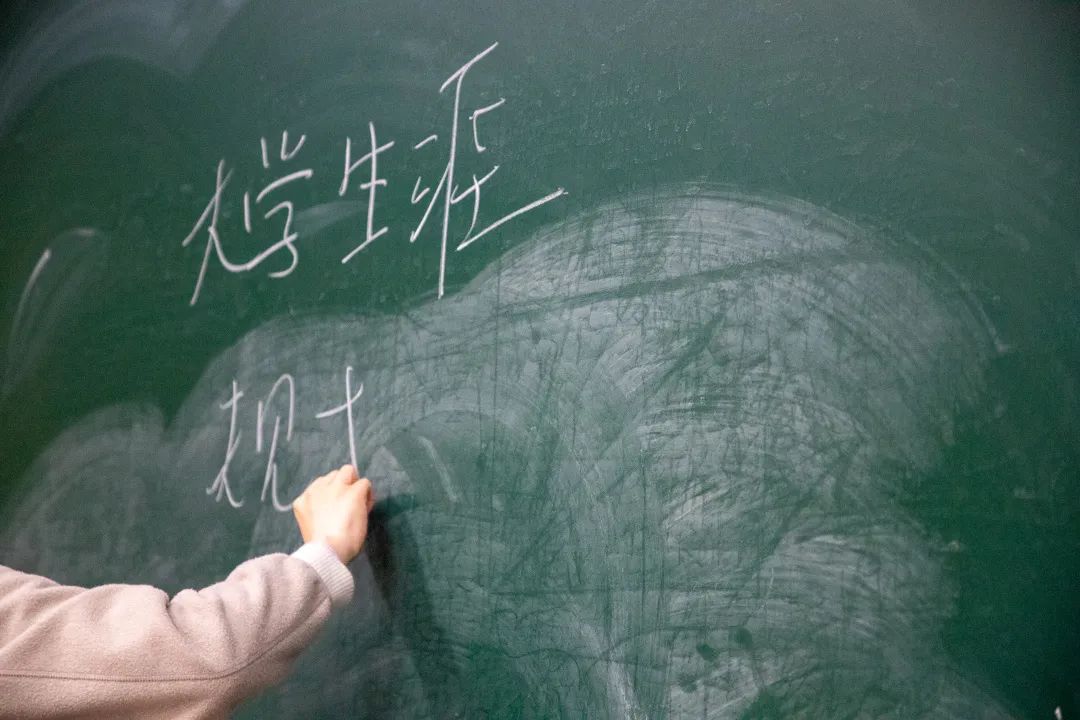 大学生涯
规